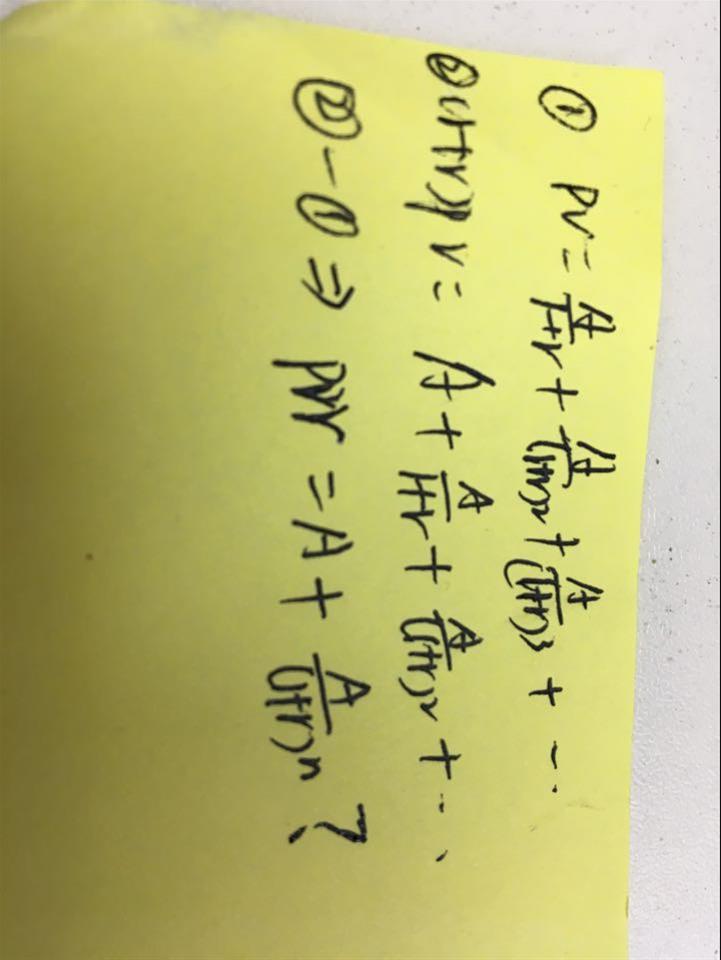 ① PV = A/(1+r) + A/(1+r)² + A/(1+r)³ + ...
② (1+r)PV = A + A/(1+r) + A/(1+r)² + ...
② - ① ⇒ PVr = A + A/(1+r)ⁿ ?